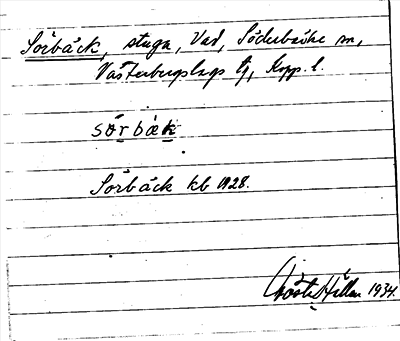 Sörbäck, stuga, Vad, Söderbärke sn,
Västerbergslags tg, Kopp. l.
sö̀rbæk
Sörbäck kb 1928.
Gösta Hillan 1934.